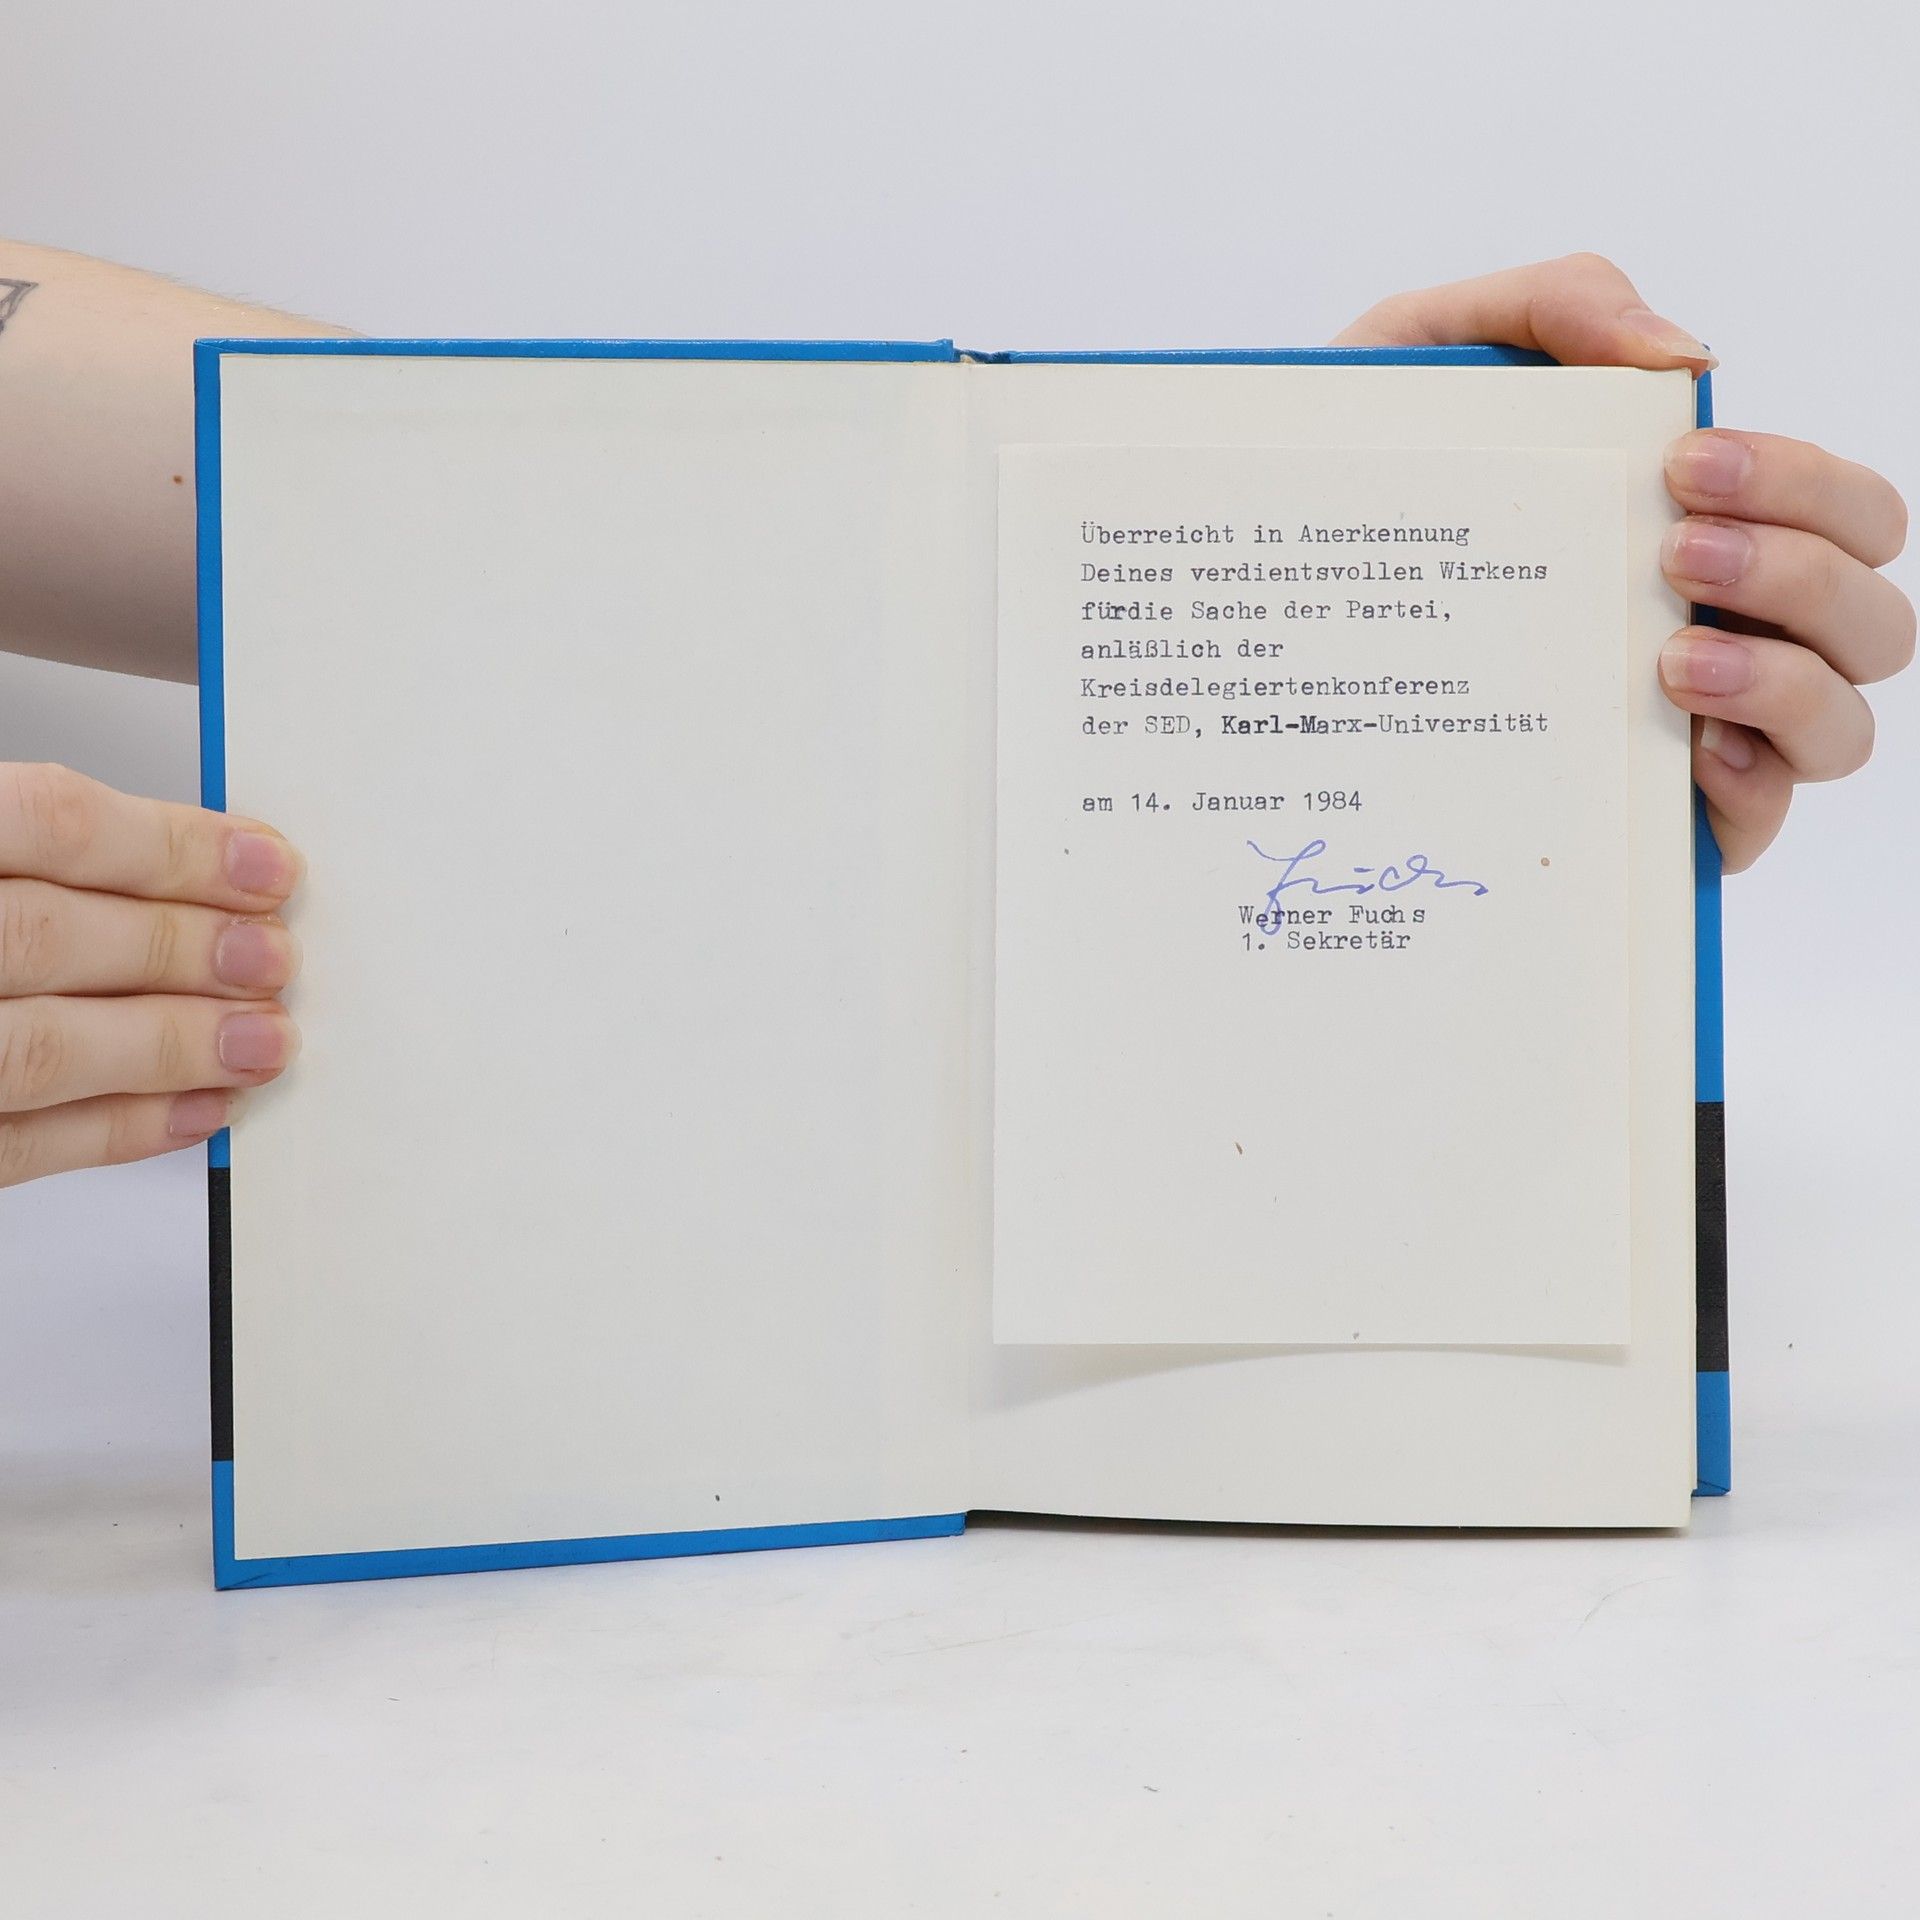 Überreicht in Anerkennung
Deines verdientsvollen Wirkens
fürdie Sache der Partei,
anläßlich der
Kreisdelegiertenkonferenz
der SED, Karl-Marx-Universität
am 14. Januar 1984
Fuchs
Werner Fuchs
1. Sekretär